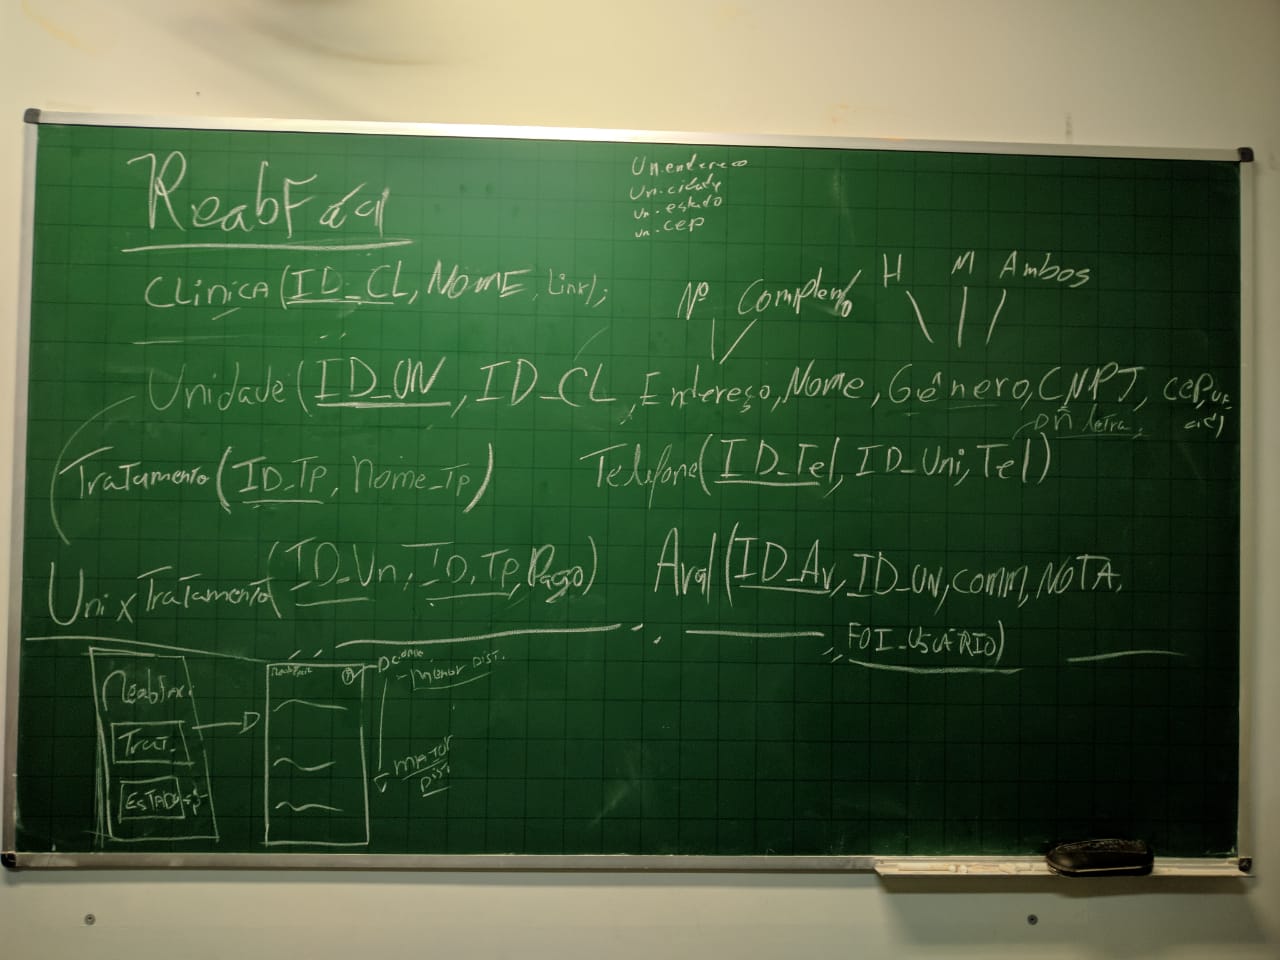 ReabFácil
Un.endereco
Un.cidade
un.estado
un.cep
Clínica (ID_CL, NOME, Link);
Nº Complem/o
H M Ambos
Unidade (ID_UN, ID_CL, Endereço, Nome, Gênero, CNPJ, CEP, UF,
cid)
letra
Tratamento (ID_Tp, Nome_Tp)
Telefone (ID_Tel, ID_Uni, Tel)
Uni x Tratamento (ID_Un, ID_Tp, Pago)
Aval (ID_Av, ID_UN, comm, NOTA,
FOI_USUÁRIO)
ReabFac.
Trat.
ESTADO
ReabFacil
- Menor DIST.
MAIOR
DIST.